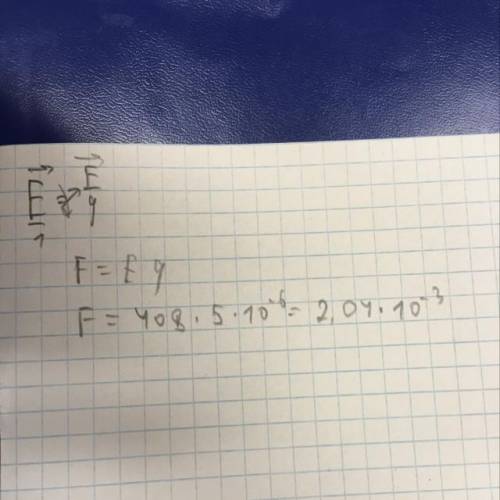 E⃗ = F⃗/q
F = E q
F = 408 · 5 · 10⁻⁶ = 2,04 · 10⁻³